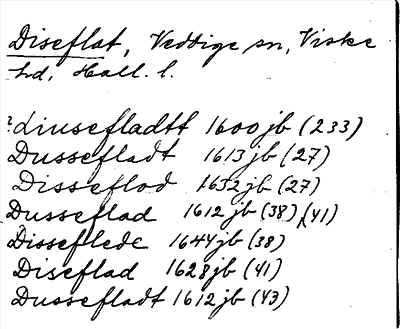 Diseflat, Veddige sn, Viske
hd, Hall. l.
? Liusefladtt 1600 jb (233)
Dussefladt 1613 jb (27)
Disseflod 1652 jb (27)
Dusseflad 1612 jb (38), (41)
Disseflede 1644 jb (38)
Diseflad 1628 jb (41)
Dussefladt 1612 jb (43)